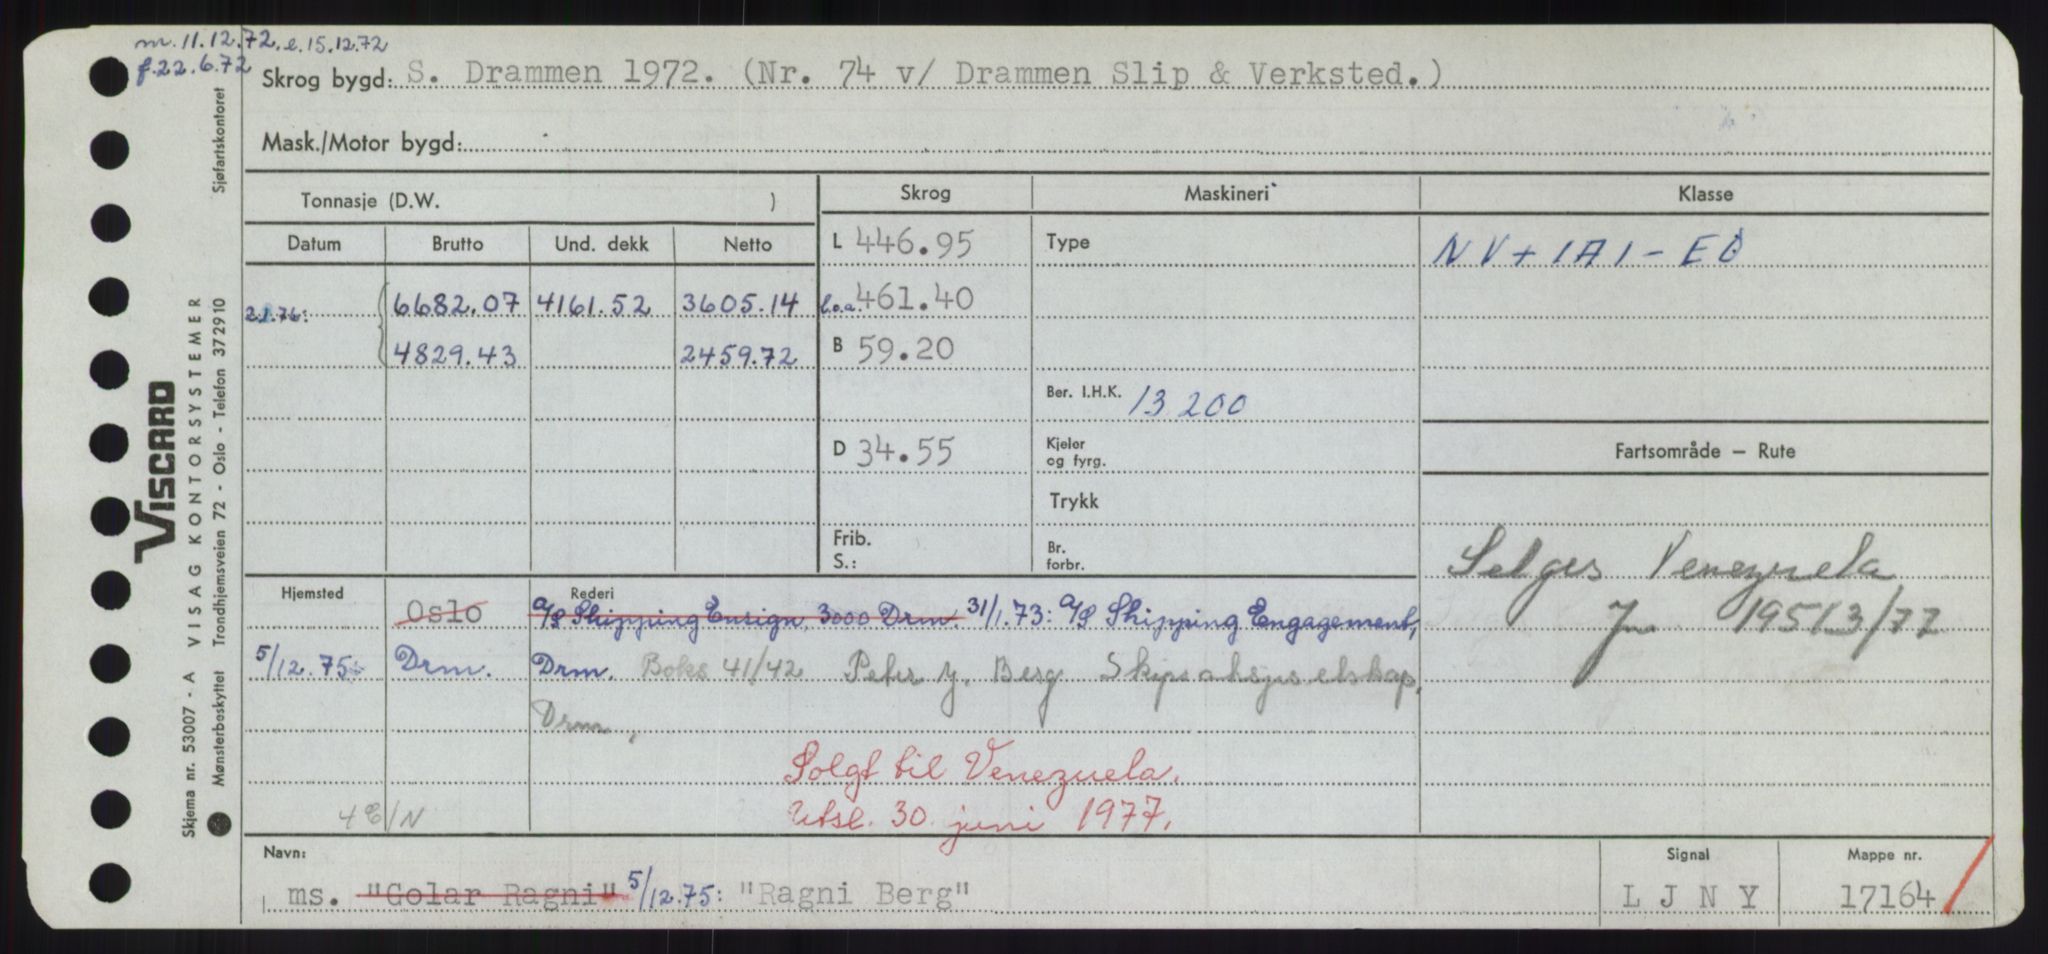 m. 11.12.72. e. 15.12.72
f. 22.6.72
Skrog bygd: S. Drammen 1972. (Nr. 74 v/ Drammen Slip & Verksted.)
Mask./Motor bygd:
Tonnasje (D.W. )
Skrog Maskineri Klasse
Datum Brutto Und. dekk Netto
L 446.95 Type NV+1A1-EO
2.1.76: 6682.07 4161.52 3605.14 l.o.a. 461.40
4829.43 2459.72 B 59.20
Ber. I.H.K. 13 200
D 34.55 Kjeler og fyrg. Fartsområde — Rute
Trykk
Frib. S.: Br. forbr. Selges Venezuela
Hjemsted Rederi
Oslo A/S Shipping Ensign, 3000 Drm. 31/1.73: A/S Shipping Engagement,
19513/77
5/12.75: Drm. Drm. Boks 41/42 Peter J. Berg Skipsaksjeselskap,
Drm,
Solgt til Venezuela.
4 E/N Utsl. 30. juni 1977.
Navn: Signal Mappe nr.
ms. "Golar Ragni" 5/12.75: "Ragni Berg" L J N Y 17164
VISCARD
Skjema nr. 53007 - A VISAG KONTORSYSTEMER
Mønsterbeskyttet Trondhjemsveien 72 - Oslo - Telefon 372910 Sjøfartskontoret